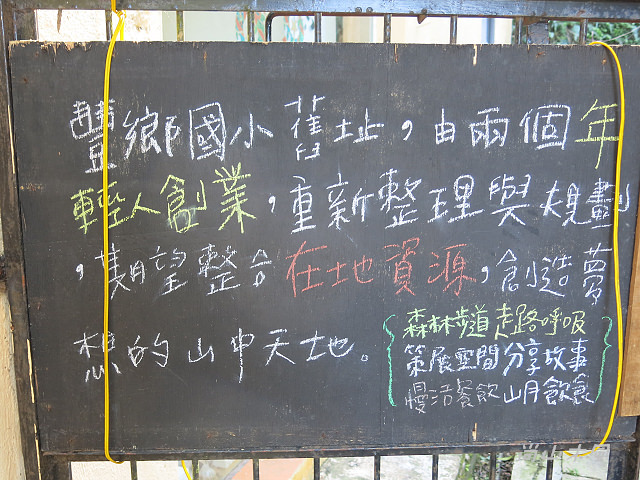 豐鄉國小舊址，由兩個年
輕人創業，重新整理與規劃
，期望整合在地資源，創造夢
想的山中天地。
森林步道走路呼吸
策展空間分享故事
慢活餐飲山月飲食